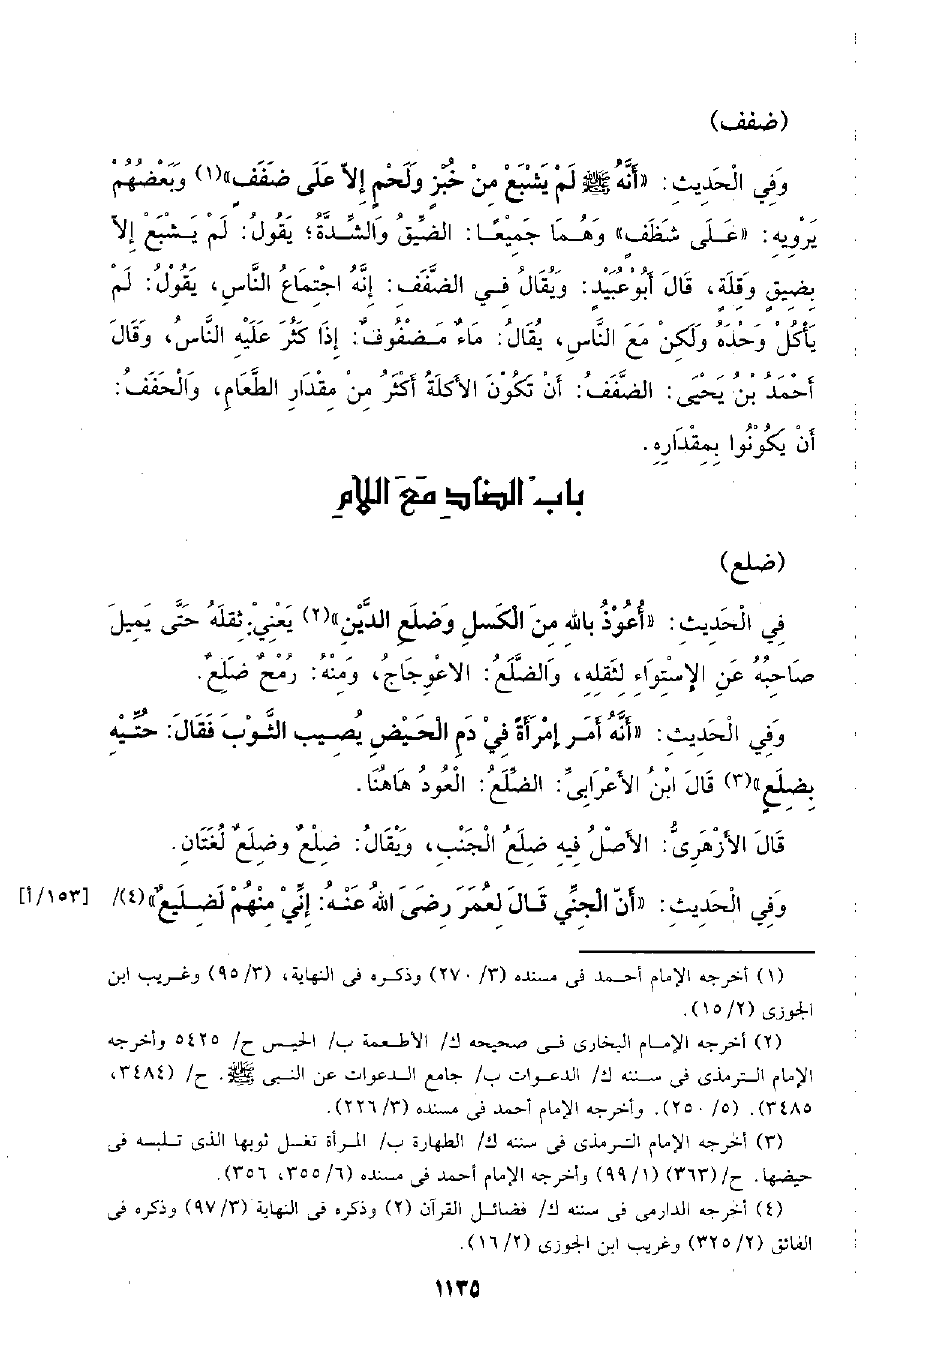 (ضفف)
وَفِي الْحَدِيثِ: «أَنَّهُ ﷺ لَمْ يَشْبَعْ مِنْ خُبْزٍ وَلَحْمٍ إِلاَّ عَلَى ضَفَفٍ»(١) وَبَعْضُهُمْ
يَرْوِيهِ: «عَلَى شَظَفٍ» وَهُمَا جَمِيْعًا: الضِّيقُ وَالشِّدَّةُ؛ يَقُولُ: لَمْ يَشْبَعْ إِلاَّ
بِضِيقٍ وَقِلَةٍ، قَالَ أَبُو عُبَيْدٍ: وَيُقَالُ فِي الضَّفَفِ: إِنَّهُ اجْتِمَاعُ النَّاسِ، يَقُوْلُ: لَمْ
يَأْكُلْ وَحْدَهُ وَلَكِنْ مَعَ النَّاسِ، يُقَالُ: مَاءٌ مَضْفُوفٌ: إِذَا كَثُرَ عَلَيْهِ النَّاسُ، وَقَالَ
أَحْمَدُ بْنُ يَحْيَى: الضَّفَفُ: أَنْ تَكُوْنَ الأَكَلَةُ أَكْثَرُ مِنْ مِقْدَارِ الطَّعَامِ، وَالْحَفَفُ:
أَنْ يَكُوْنُوا بِمِقْدَارِهِ.
بَابُ الضَّادِ مَعَ اللَّامِ
(ضلع)
فِي الْحَدِيثِ: «أَعُوْذُ بِاللهِ مِنَ الْكَسَلِ وَضَلَعِ الدَّيْنِ»(٢) يَعْنِيْ: ثِقَلَهُ حَتَّى يَمِيلَ
صَاحِبُهُ عَنِ الإِسْتِوَاءِ لِثِقَلِهِ، وَالضَّلَعُ: الاعْوِجَاجُ، وَمِنْهُ: رُمْحٌ ضَلِعٌ.
وَفِي الْحَدِيثِ: «أَنَّهُ أَمَرَ إِمْرَأَةً فِيْ دَمِ الْحَيْضِ يُصِيبُ الثَّوْبَ فَقَالَ: حُتِّيْهِ
بِضِلَعٍ»(٣) قَالَ ابْنُ الأَعْرَابِيِّ: الضِّلَعُ: الْعُودُ هَاهُنَا.
قَالَ الأَزْهَرِىُّ: الأَصْلُ فِيهِ ضِلَعُ الْجَنْبِ، وَيُقَالُ: ضِلْعٌ وَضِلَعٌ لُغَتَانِ.
وَفِي الْحَدِيثِ: «أَنَّ الْجِنِّي قَالَ لِعُمَرَ رَضِىَ اللهُ عَنْهُ: إِنِّيْ مِنْهُمْ لَضَلِيعٌ»(٤)/ [١٥٣/أ]
(١) أخرجه الإمام أحمد فى مسنده (٣/ ٢٧٠) وذكره فى النهاية، (٣/ ٩٥) وغريب ابن
الجوزى (٢/ ١٥).
(٢) أخرجه الإمام البخارى فى صحيحه ك/ الأطعمة ب/ الحيس ح/ ٥٤٢٥ وأخرجه
الإمام الترمذى فى سننه ك/ الدعوات ب/ جامع الدعوات عن النبى ﷺ. ح/ (٣٤٨٤،
٣٤٨٥). (٥/ ٢٥٠). وأخرجه الإمام أحمد فى مسنده (٣/ ٢٢٦).
(٣) أخرجه الإمام الترمذى فى سننه ك/ الطهارة ب/ المرأة تغسل ثوبها الذى تلبسه فى
حيضها. ح/ (٣٦٣) (١/ ٩٩) وأخرجه الإمام أحمد فى مسنده (٦/ ٣٥٥، ٣٥٦).
(٤) أخرجه الدارمى فى سننه ك/ فضائل القرآن (٢) وذكره فى النهاية (٣/ ٩٧) وذكره فى
الفائق (٢/ ٣٢٥) وغريب ابن الجوزى (٢/ ١٦).
١١٣٥